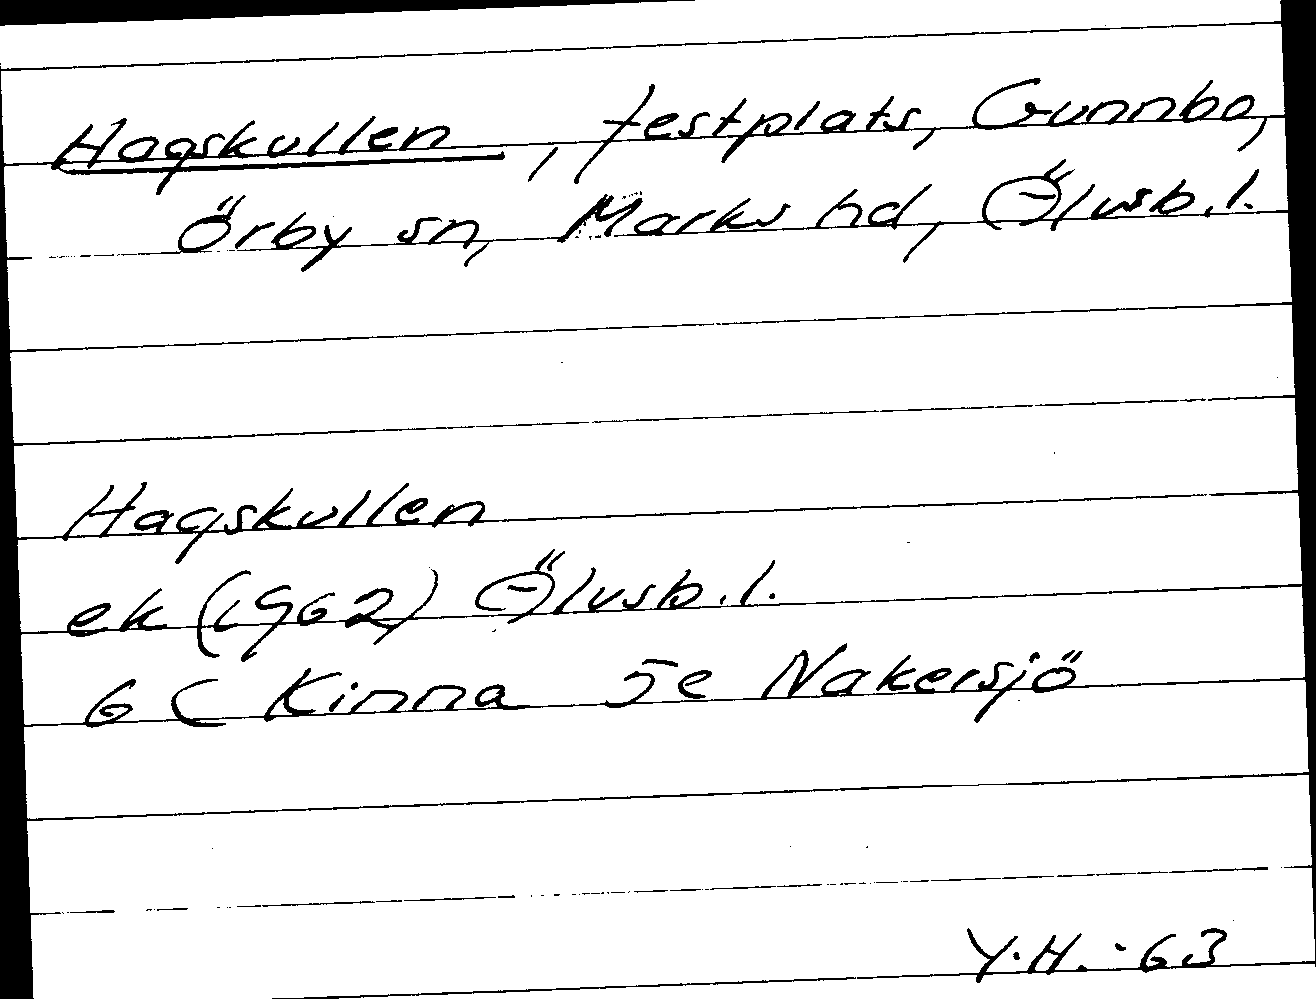 Hagskullen, festplats, Gunnbo,
Örby sn, Marks hd, Älvsb. l.
Hagskullen
ek (1962) Älvsb. l.
6 C Kinna 5e Nakersjö
Y. H. -63